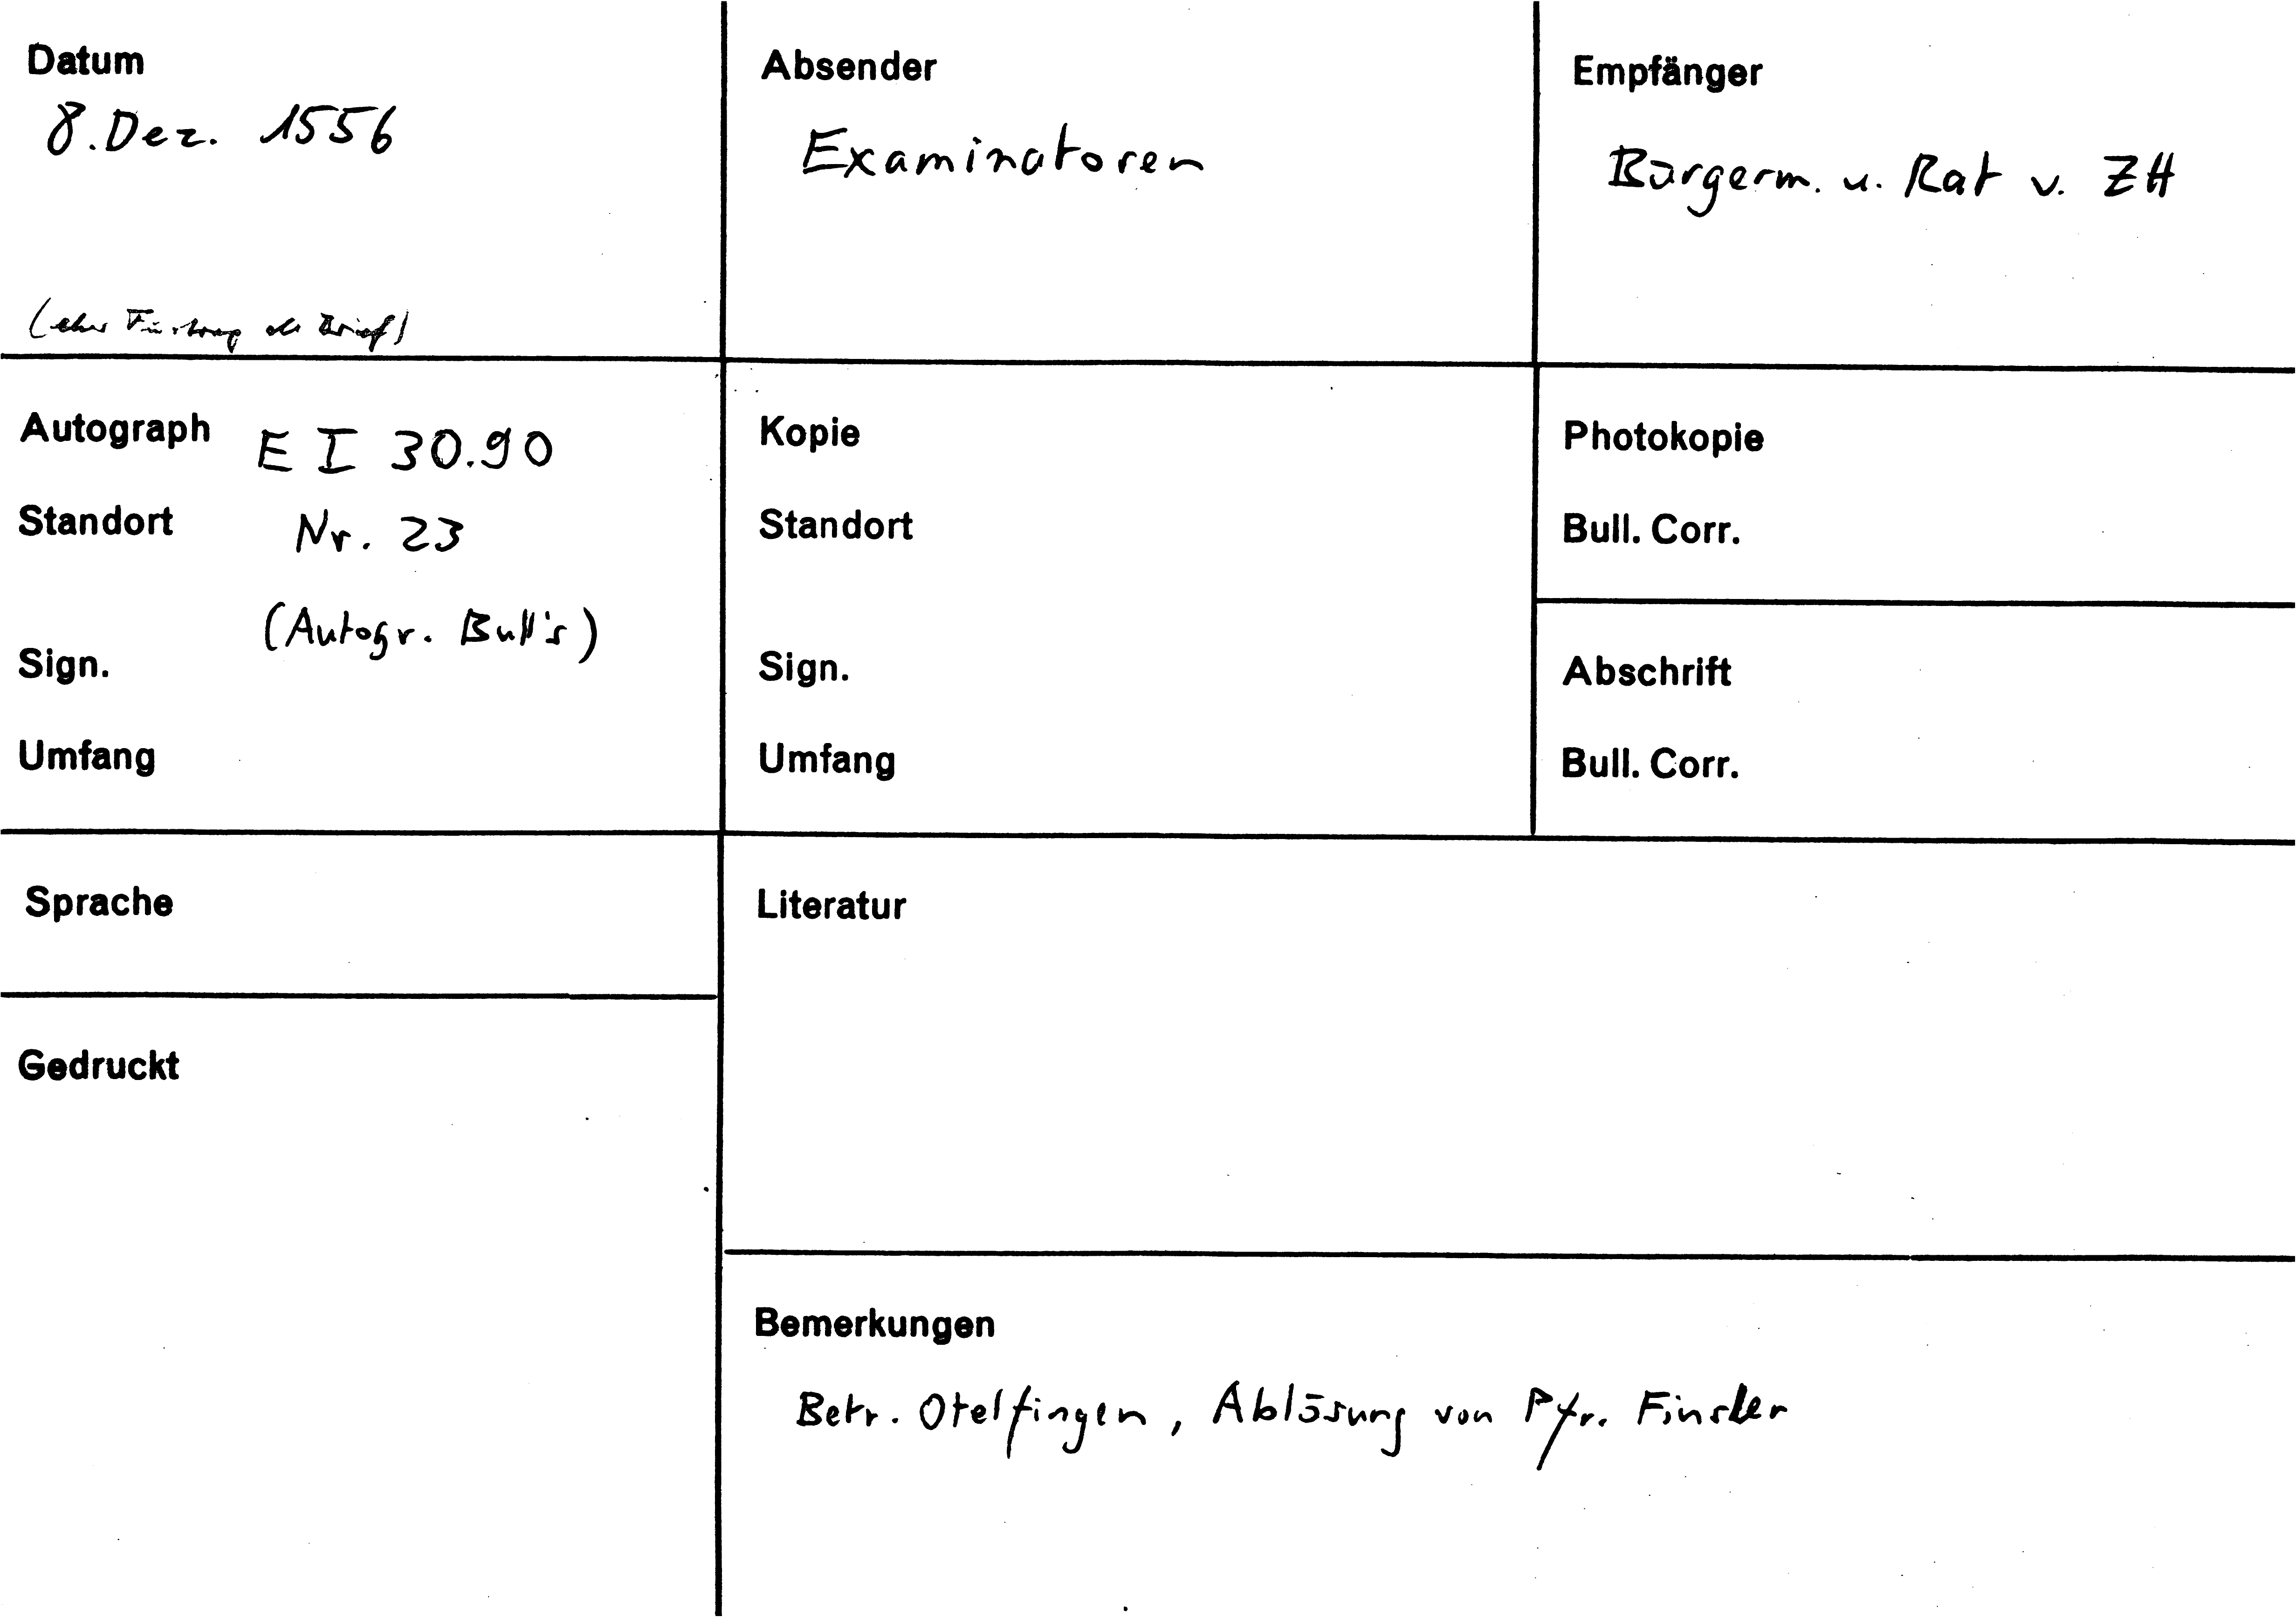 Datum
8. Dez. 1556
Absender
Examinatoren
Empfänger
Bürgerm. u. Rat v. ZH
Autograph E I 30.90
Standort Nr. 23
(Autogr. Bull's)
Sign.
Umfang
Kopie
Standort
Sign.
Umfang
Photokopie
Bull. Corr.
Abschrift
Bull. Corr.
Sprache
Gedruckt
Literatur
Bemerkungen
Betr. Otelfingen, Ablösung von Pfr. Finsler